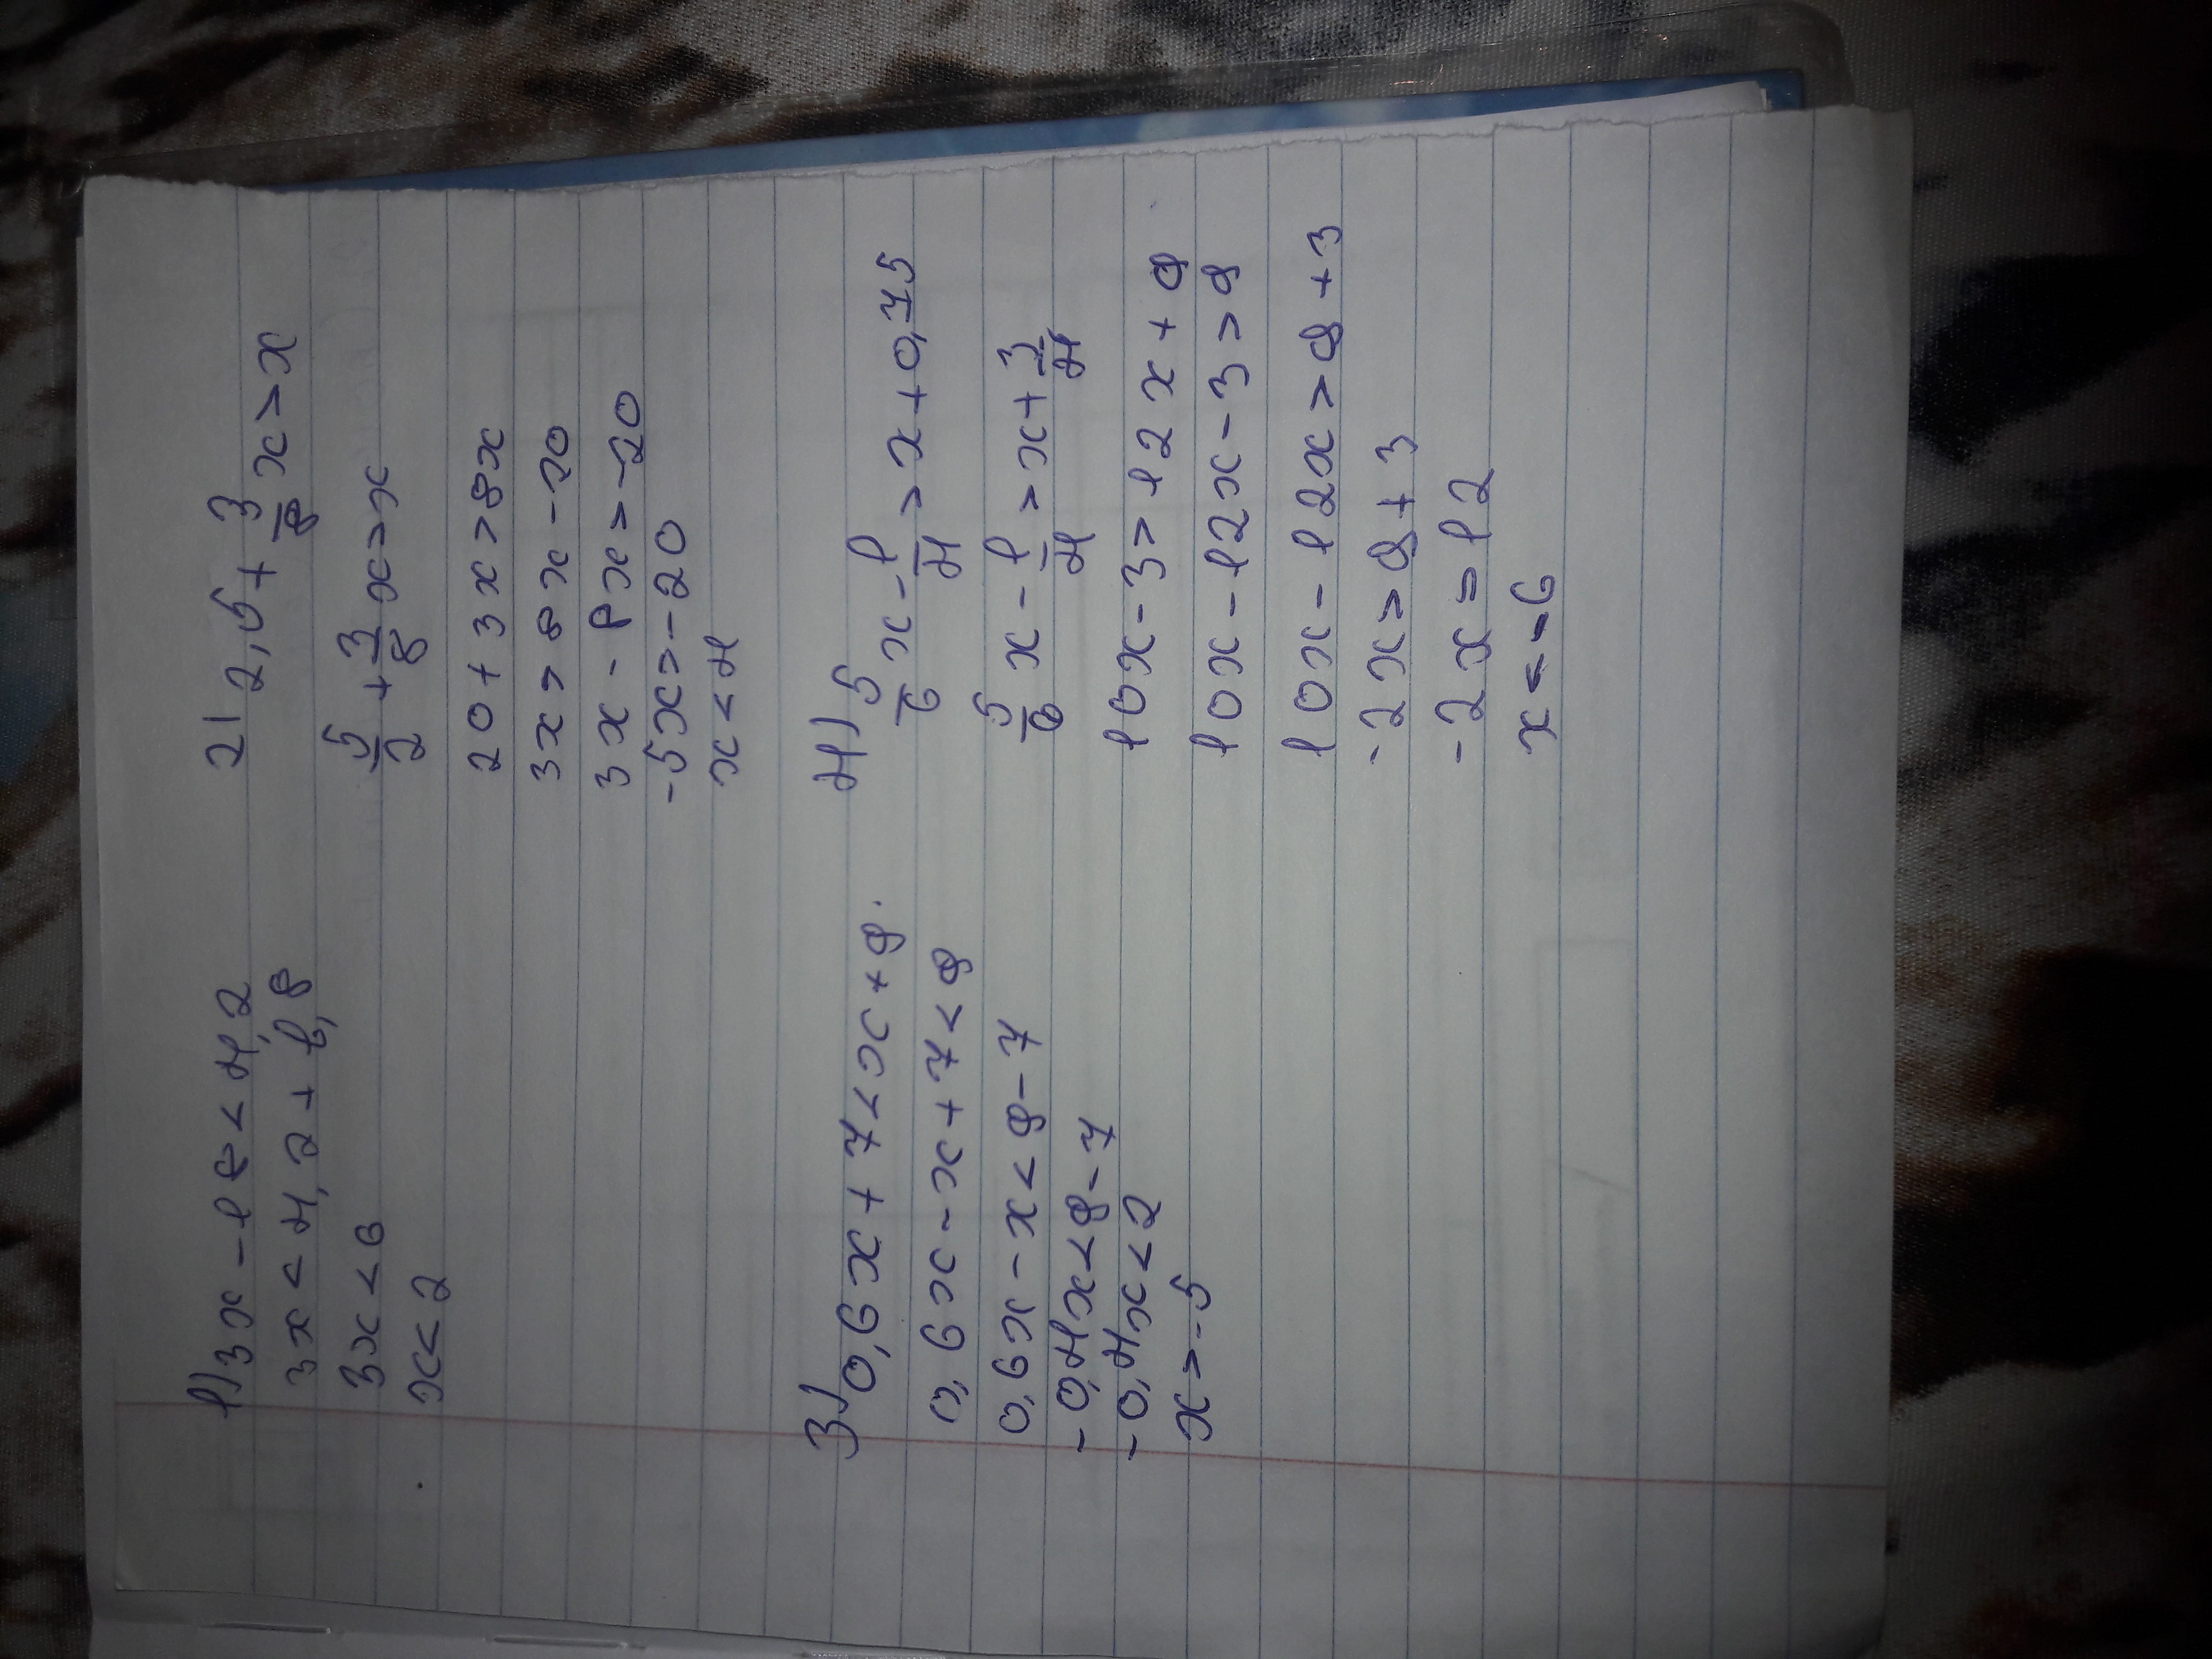 1) 3x - 1,8 < 4,2
3x < 4,2 + 1,8
3x < 6
x < 2
2) 2,5 + 3/8 x > x
5/2 + 3/8 x > x
20 + 3x > 8x
3x > 8x - 20
3x - 8x > -20
-5x > -20
x < 4
3) 0,6x + 7 < x + 9.
0,6x - x + 7 < 9
0,6x - x < 9 - 7
-0,4x < 9 - 7
-0,4x < 2
x > -5
4) 5/6 x - 1/4 > x + 0,75
5/6 x - 1/4 > x + 3/4
10x - 3 > 12x + 9
10x - 12x - 3 > 9
10x - 12x > 9 + 3
-2x > 9 + 3
-2x = 12
x < -6